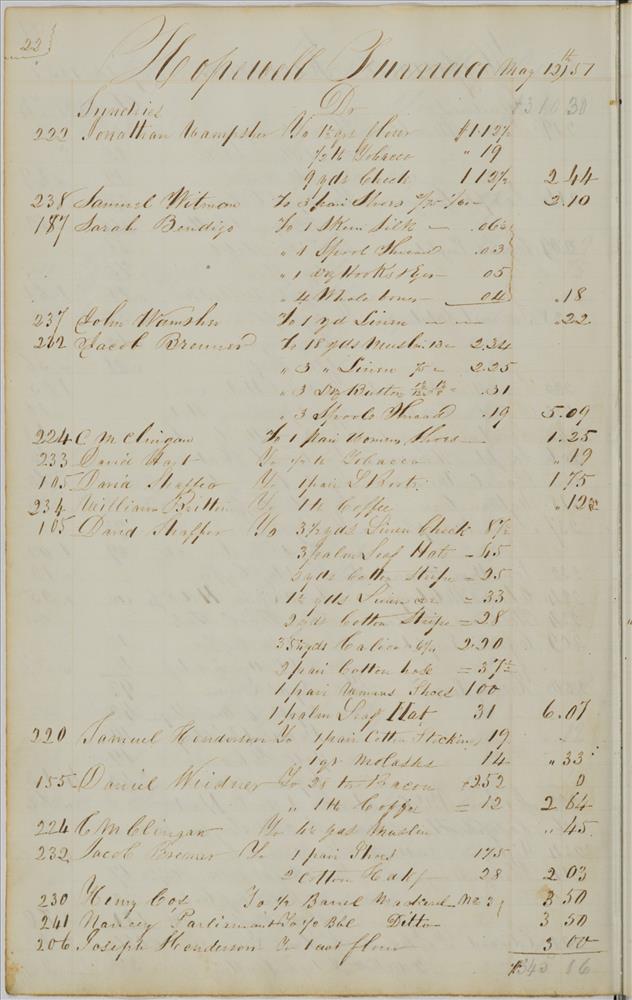 22
Hopewell Furnace May 12th 57
Syndries Dr $310 30
222 Jonathan Wampsher To 1/2 qr flour $1.12½
½ lb Tobacco " 19
9 yds Check 1 12½ 2 44
238 Samuel Witman To 3 pair Shoes 2.10
187 Sarah Bendigo To 1 Skein Silk — .06¼
" 1 Spool Thread .03
" 1 dz Hooks & Eyes 05
" 4 Whale bones 04 .18
237 John Wamsher To 1 yd Linen — — .22
202 Jacob Bremer To 18 yds Muslin 13 2.34
" 3 " Linen 75 2.25
" 3 Dz Button .31
" 3 Spools Thread .19 5.09
224 C M Clingan To 1 pair Womens Shoes — 1.25
233 David Hart To ½ lb Tobacco " 19
105 David Shaffer To 1 pair Boots 1 75
234 William Britton To 1 lb Coffee " 12½
105 David Shaffer To 3½ yds Linen Check 87½
3 palm Leaf Hats = 45
2 yds Cotton Stripe = 25
1½ yds Linen = 33
2 yds Cotton Stripe = 28
35½ yds Calico 6¼ 2.20
2 pair Cotton hose = 37½
1 pair Womans Shoes 1 00
1 palm Leaf Hat 31 6.07
220 Samuel Henderson To 1 pair Cotton Stockings 19
1 qt Molasses 14 " 33
155 Daniel Weidner To 28 lbs Bacon $2 52 0
" 1 lb Coffee = 12 2 64
224 C M Clingan To 4½ yds Muslin " 45
232 Jacob Bremer To 1 pair Shoes 1 75
2 Cotton Hdkfs 28 2 03
230 Henry Cox To ½ Barrel Mackerel No 3 3 50
241 Nancy To ½ Bbl Ditto 3 50
206 Joseph Henderson 1 cwt flour 3 00
$343 16